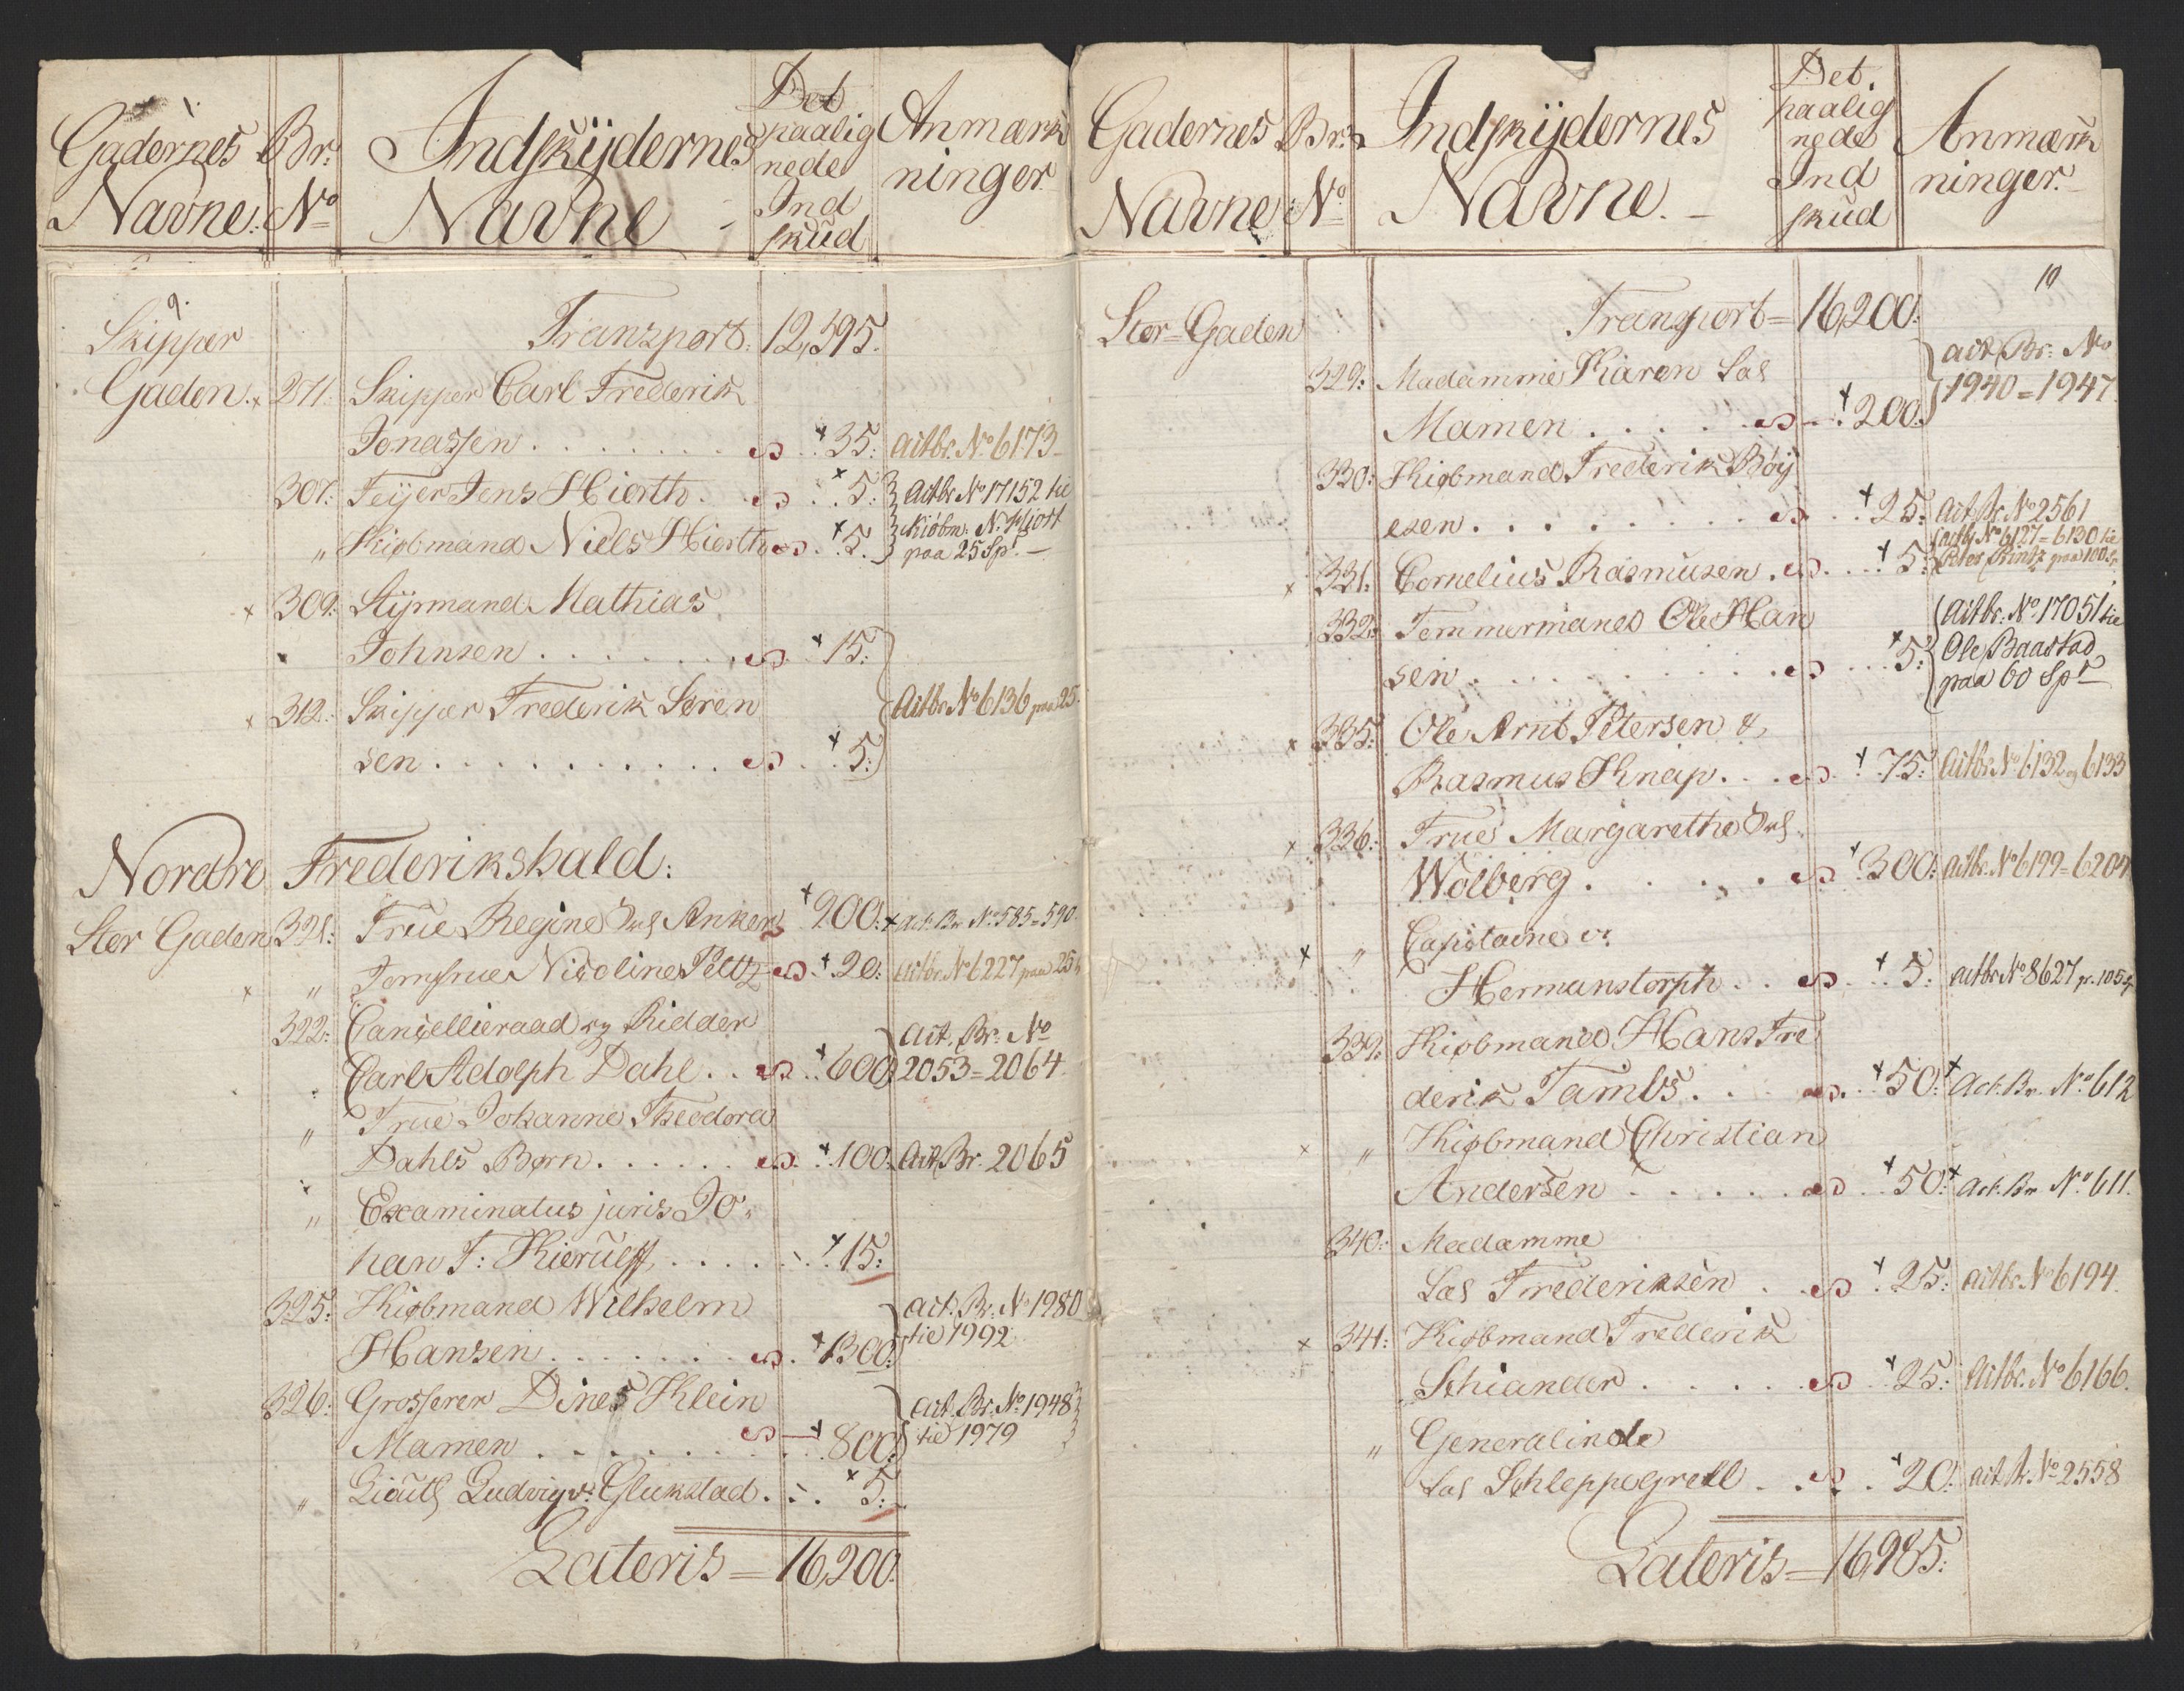 Gadernes Navne.
Br: No
Indskydernes Navne
Det paalig nede Ind skud
Anmærk ninger.
9.
Skipper Transport. 12,595.
Gaden. x 271. Skipper Carl Frederik
Jonassen . . . . . . . x 35: Actbr. No 6173
307: Feyer Jens Hiorth . . . x 5: Actbr No 17152 tie
„ Kiøbmand Niels Hiorth . x 5. Kiøbm: N. Hjort
paa 25 Sp. —
x 309: Styrmand Mathias
Johnsen . . . . . . . x 15:
x 312: Skipper Frederik Søren Actbr No 6136 paa 25
sen . . . . . . . . . . x 5:
Nordre Frederikshald:
Stor Gaden 321: Frue Regine Sal Anker x 200: x Act. Br No. 585=590.
x „ Jomfrue Nicoline Peltz x 20: Actbr. No 6227 paa 25
322: Cancellieraad og Ridder Act. Br: No
Carl Adolph Dahl . . x 600. 2053=2064.
„ Frue Johanne Theodora
Dahls Børn . . . . . . x 100. Act Br. 2065
„ Examinatus juris Jo-
han F: Kierulff . . . . . x 15:
325: Kiøbmand Wilhelm Act. Br. No 1980
Hansen . . . . . . . x 1300: tie 1992
326: Grosserer Dines Klein Act. Br. No 1948
Mamen . . . . . . . x 800: tie 1979
„ Lieut: Ludvig v: Glukstad . . . x 5:
Lateris = 16,200.
Gadernes Navne
Br: No.
Indskydernes Navne. —
Det paalig nede Ind skud
Anmærk ninger. —
10
Stor=Gaden Transport = 16,200.
329: Madamme Karen Sal Act. Br: No
Mamen . . . . . x 200. 1940=1947.
330: Kiøbmand Frederik Bøy
esen . . . . . . . . . x 25: Act. Br. No 2561
x 331. Cornelius Rasmusen . . . x 5: Actbr No 6127=6130 tie
Peter Printz paa 100 Sp
332: Tømmermand Ole Han Actbr. No 17051 tie
sen . . . . . . . . . . x 5: Ole Baastad
paa 60 Sp
x 335: Ole Arnt Petersen &
Rasmus Kneip . . . x 75: Actbr. No 6132 og 6133
x 336: Frue Margarethe Sal.
Wølberg . . . . . x 300: Actbr. No 6199=6204
x „ Capitaine v:
Hermanstorph . . x 5: Actbr No 8627 p. 105 Sp
339: Kiøbmand Hans Fre
derik Tambs . . . x 50: x Act. Br. No. 612
x „ Kiøbmand Christian
Andersen . . . . . . x 50: x Act. Br No. 611.
340: Madamme
Sal Frederiksen . . x 25: Actbr. No 6194.
x 341: Kiøbmand Frederik
Schiander . . . . . x 25: Actbr. No 6166.
„ Generalinde
Sal Schleppegrell . . . x 20: Act. Br. No 2558
Lateris = 16,985: